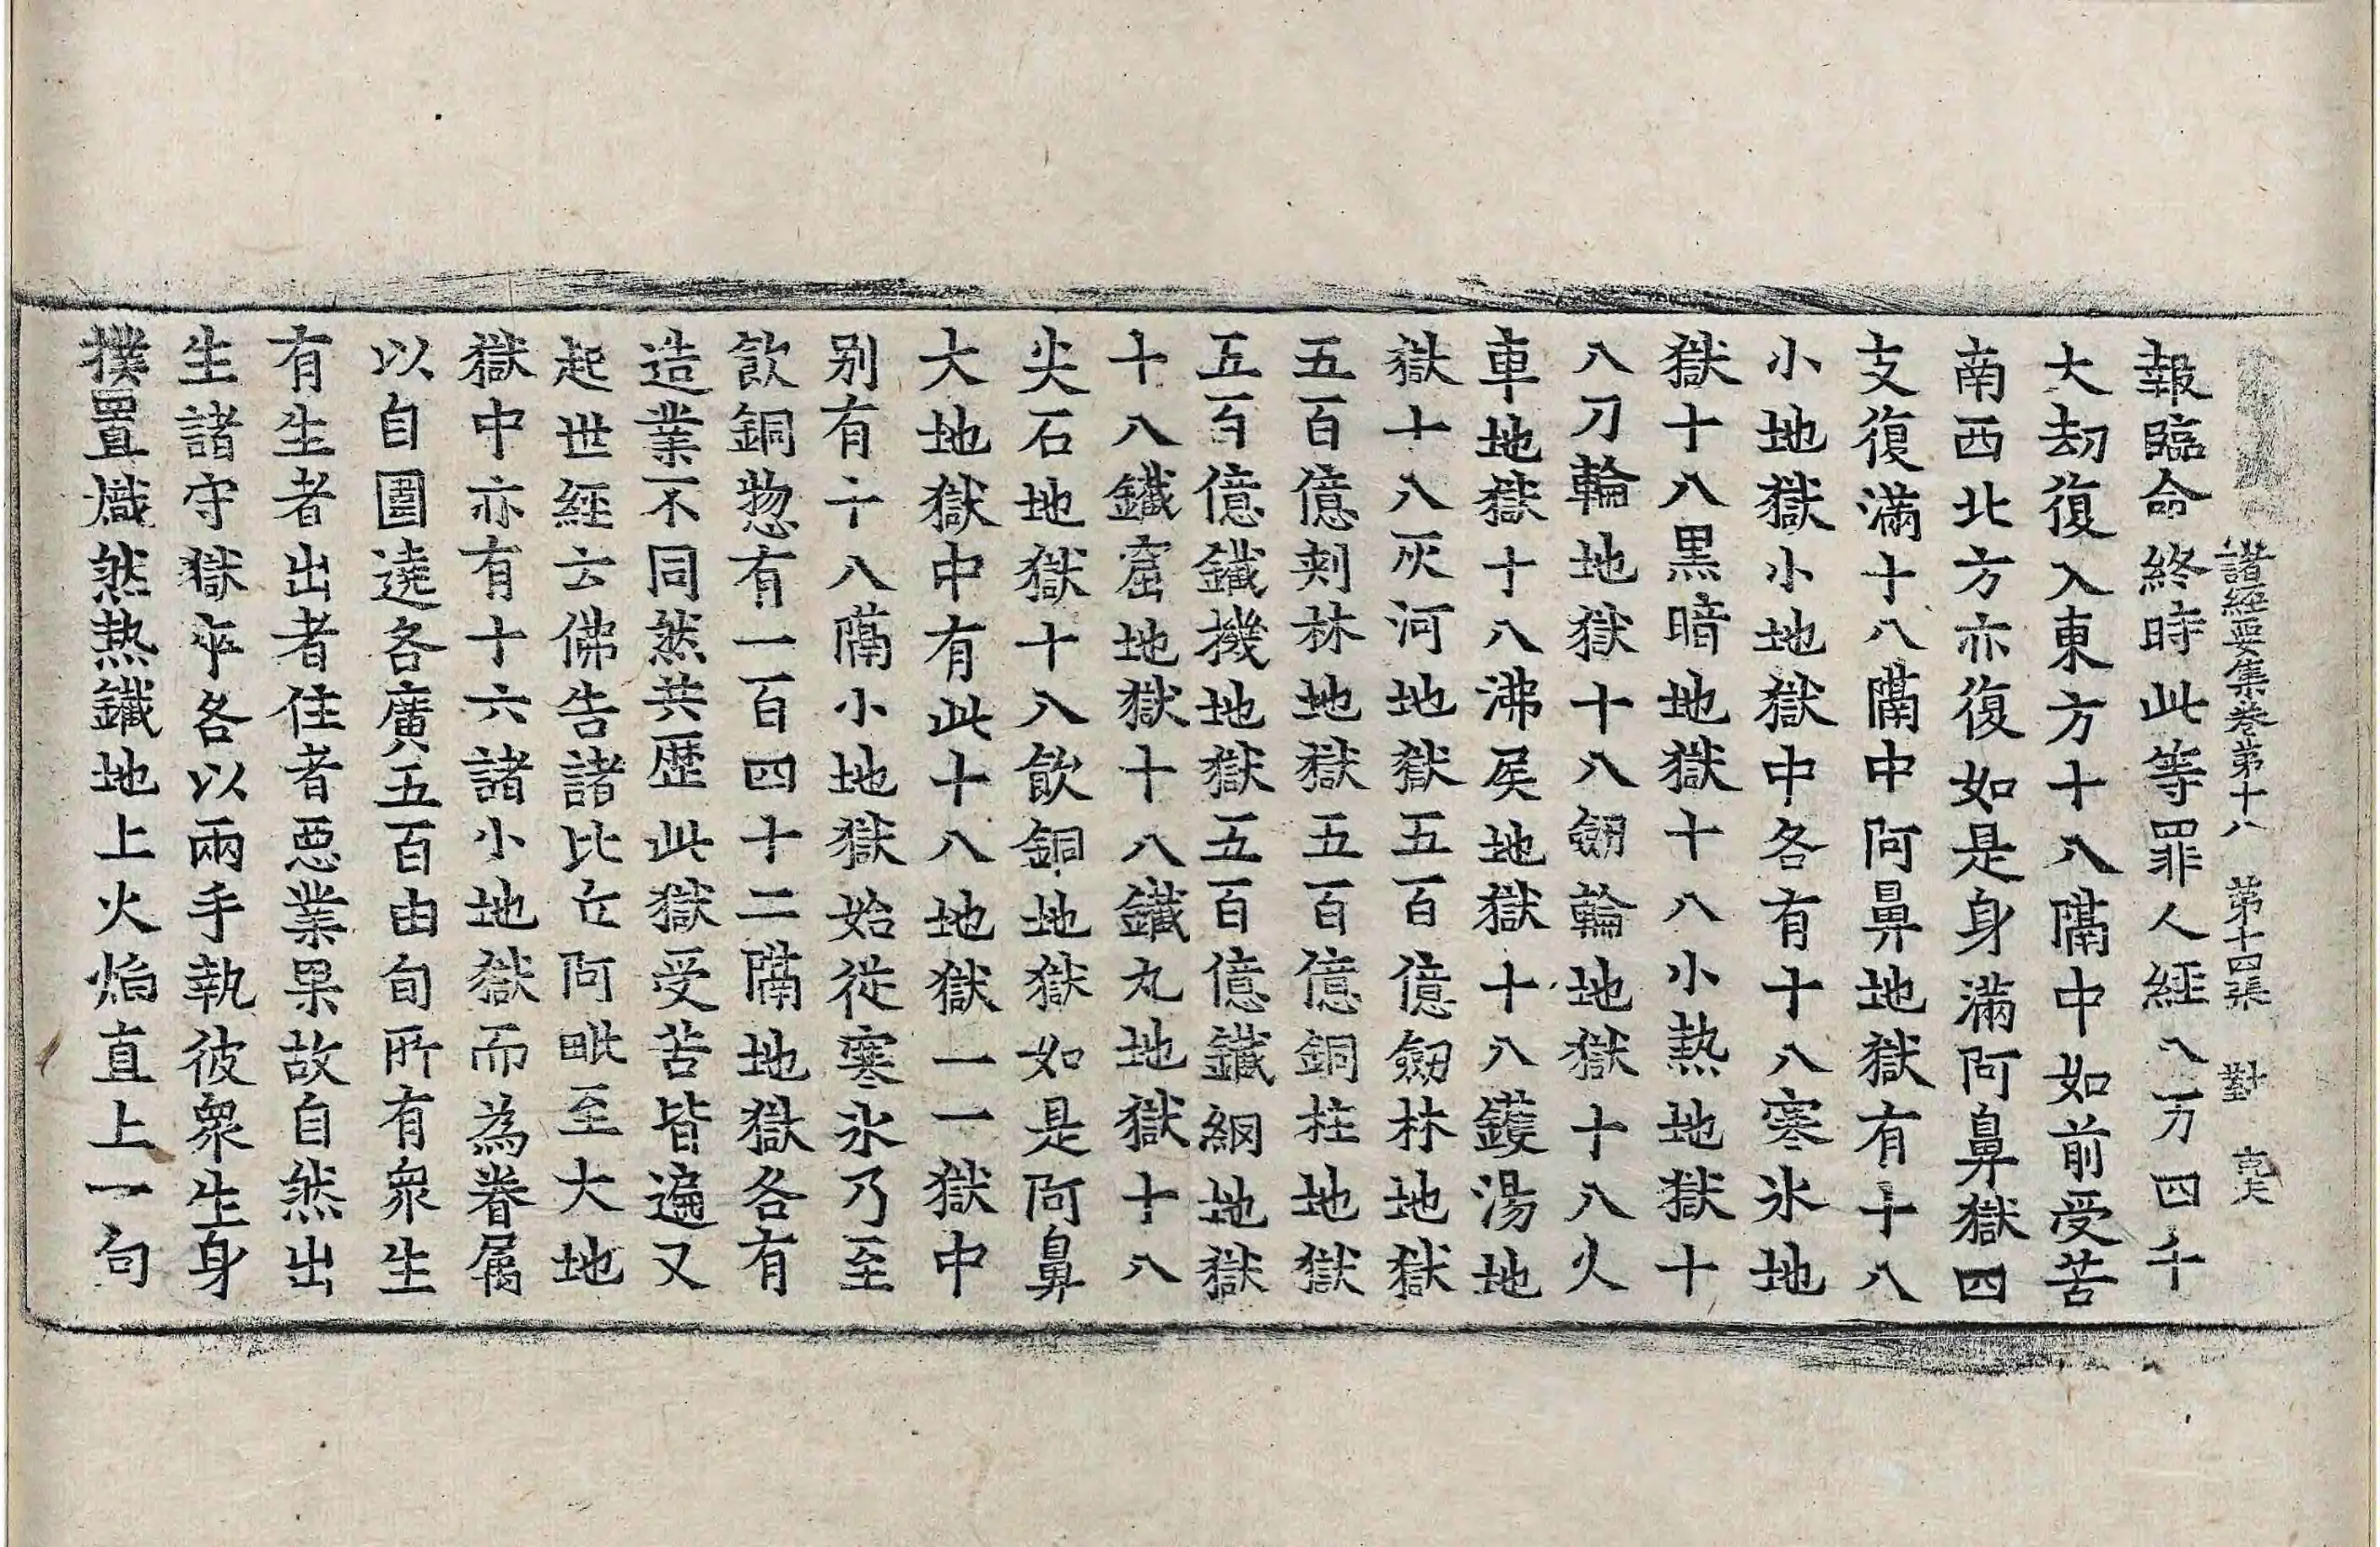 諸經要集卷第十八 第十四張 對
報臨命終時此等罪人經八万四千
大劫復入東方十八隔中如前受苦
南西北方亦復如是身滿阿鼻獄四
支復滿十八隔中阿鼻地獄有十八
小地獄小地獄中各有十八寒氷地
獄十八黑暗地獄十八小熱地獄十
八刀輪地獄十八劒輪地獄十八火
車地獄十八沸屎地獄十八鑊湯地
獄十八灰河地獄五百億劒林地獄
五百億刺林地獄五百億銅柱地獄
五百億鐵機地獄五百億鐵網地獄
十八鐵窟地獄十八鐵丸地獄十八
尖石地獄十八飲銅地獄如是阿鼻
大地獄中有此十八地獄一一獄中
別有十八隔小地獄始從寒氷乃至
飲銅惣有一百四十二隔地獄各有
造業不同然共歷此獄受苦皆遍又
起世經云佛告諸比丘阿毗至大地
獄中亦有十六諸小地獄而為眷屬
以自圍遶各廣五百由旬所有眾生
有生者出者住者惡業果故自然出
生諸守獄卒各以兩手執彼眾生身
撲置熾然熱鐵地上火焰直上一向